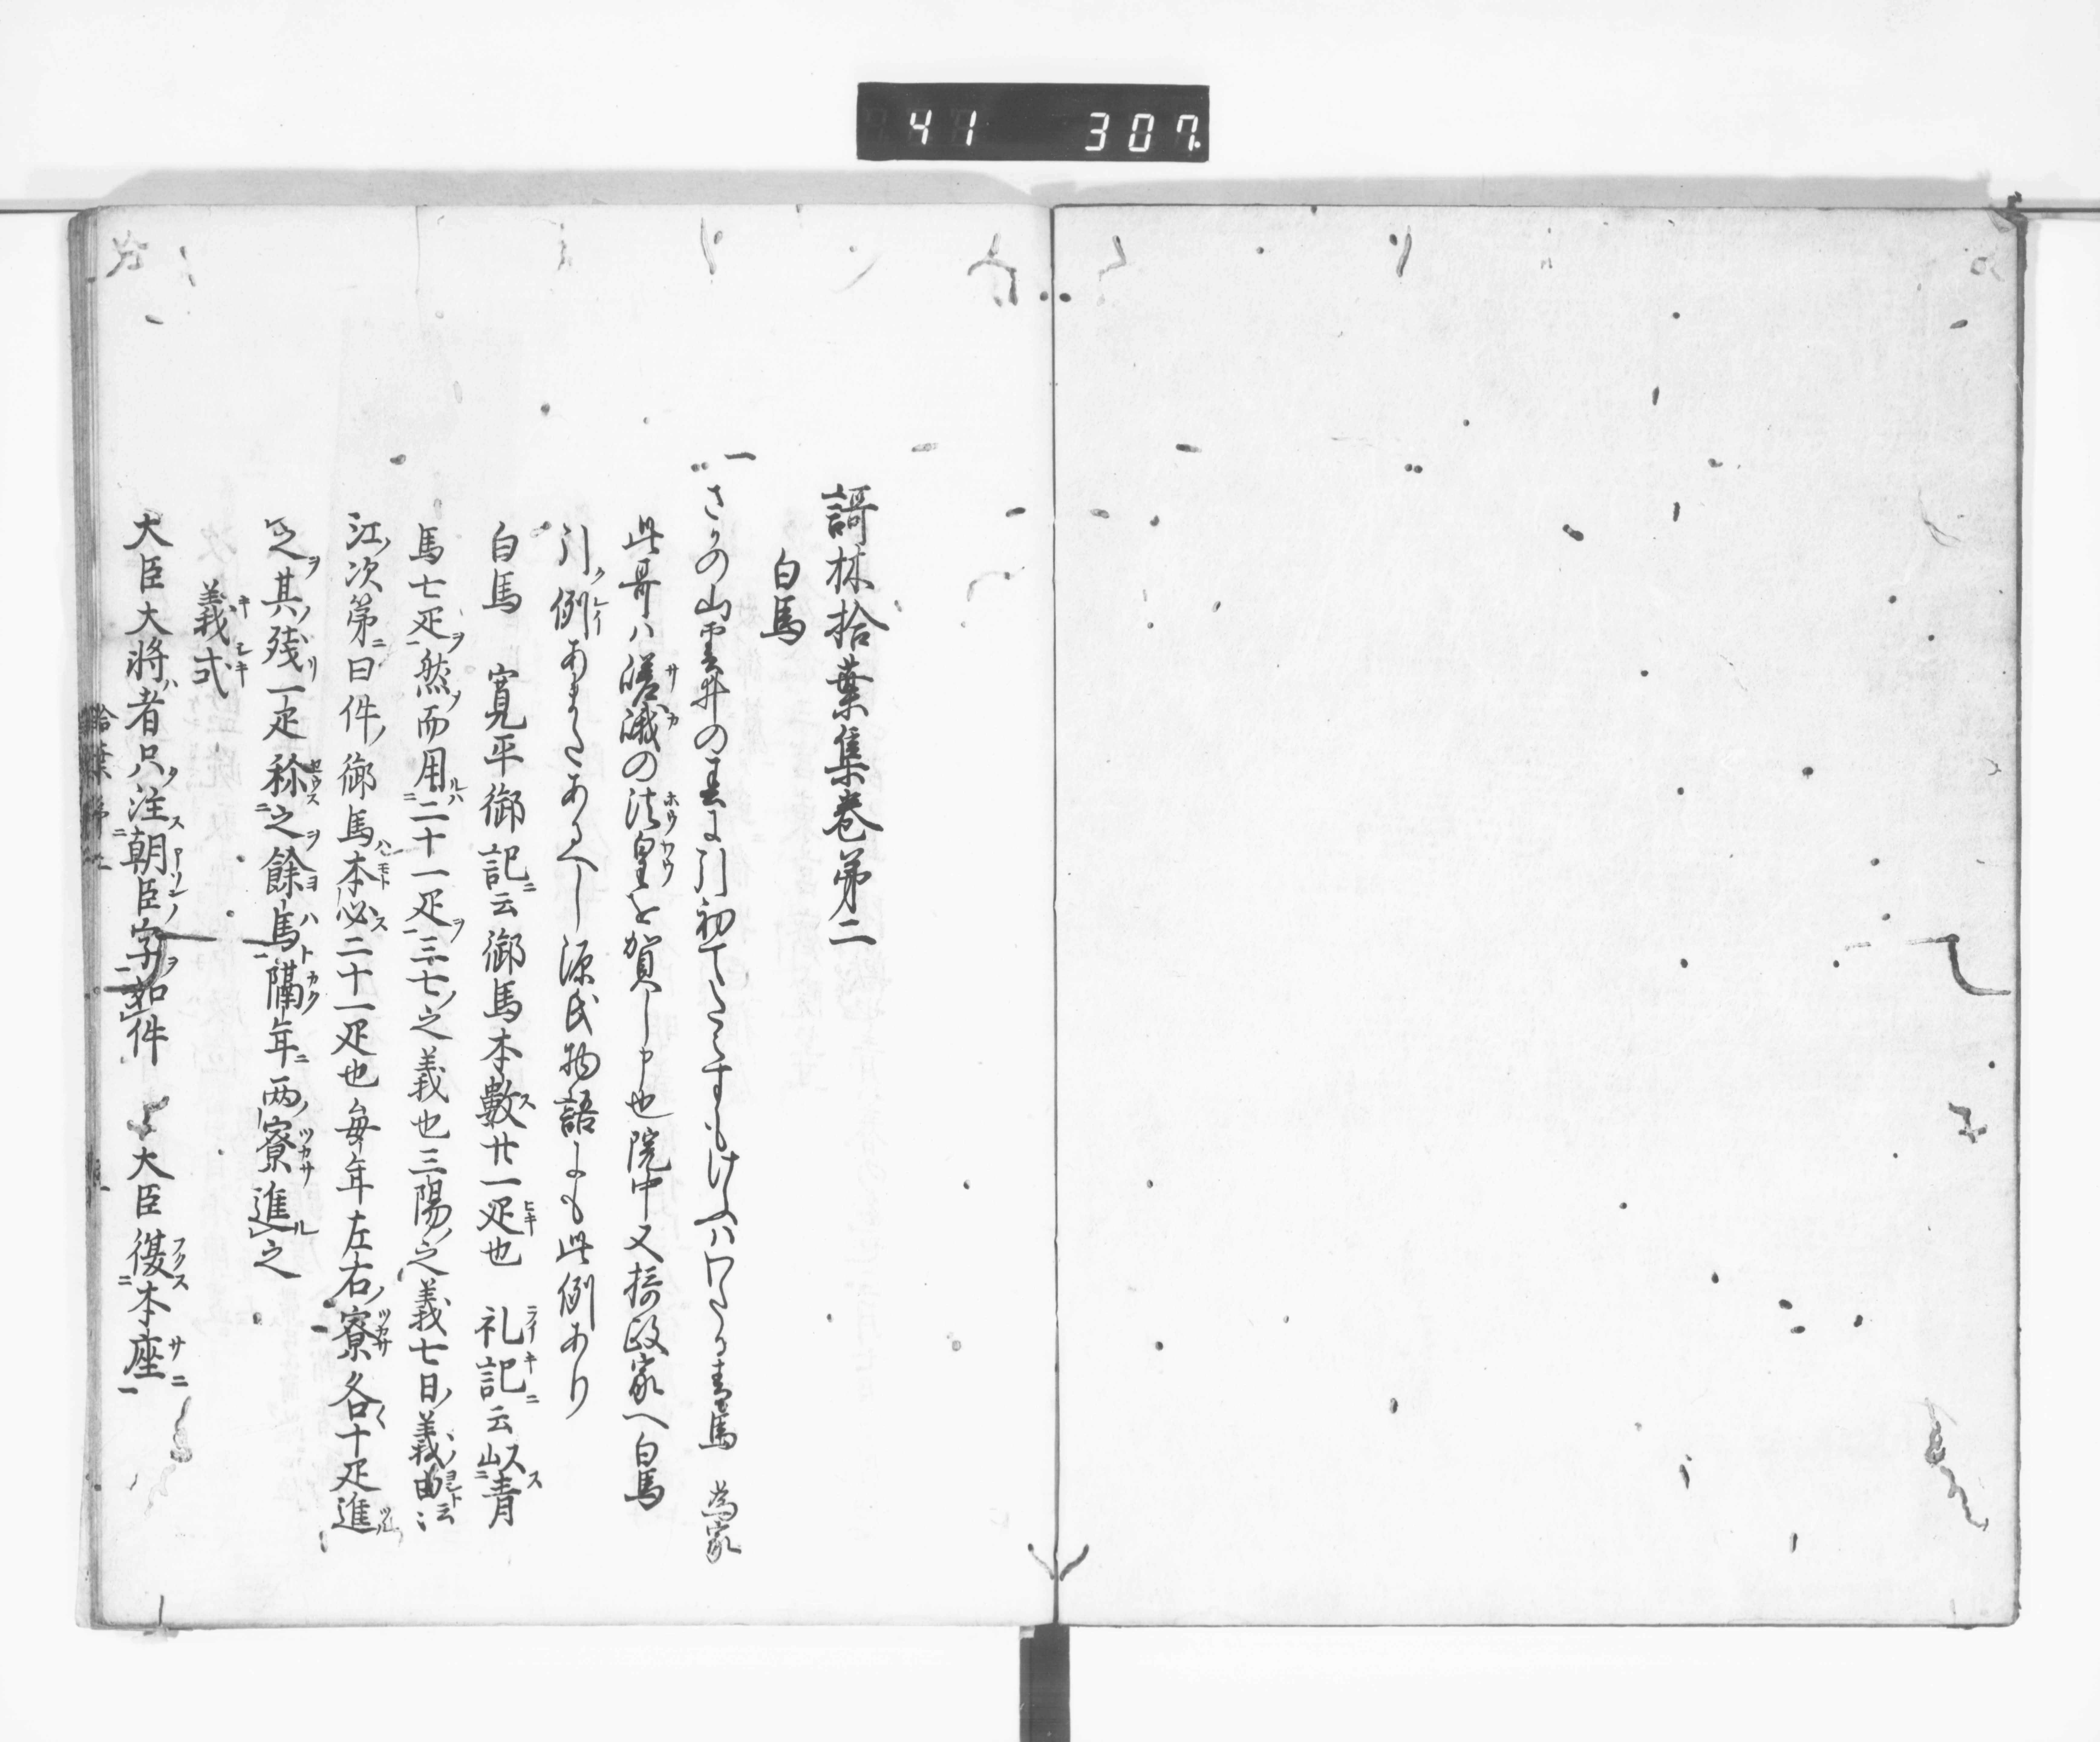 41 307
謌林拾葉集巻第二
白馬
一さかの山雲井の春に引初てためすもけふハわたる青馬 為家
此哥ハ嵯峨の法皇を賀し申也院中又摂政家へ白馬
引例あまたあるへし源氏物語にも此例あり
白馬 寛平御記云御馬本數廿一疋也 礼記云 青
馬七疋然而用二十一疋三七之義也三陽之義七日義
江次第曰件御馬本必二十一疋也毎年左右寮各十疋進
之其残一疋称之餘馬隔年両寮進之
義式
大臣大将者只注朝臣字如件 大臣復本座
拾葉